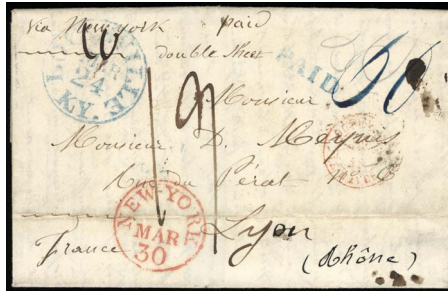 via New York paid
double sheet
LOUISVILLE KY. MAR 24
PAID
Monsieur
Monsieur D. Meynis
Rue du Pérat
NEW-YORK MAR 30
Lyon
France (Rhône)